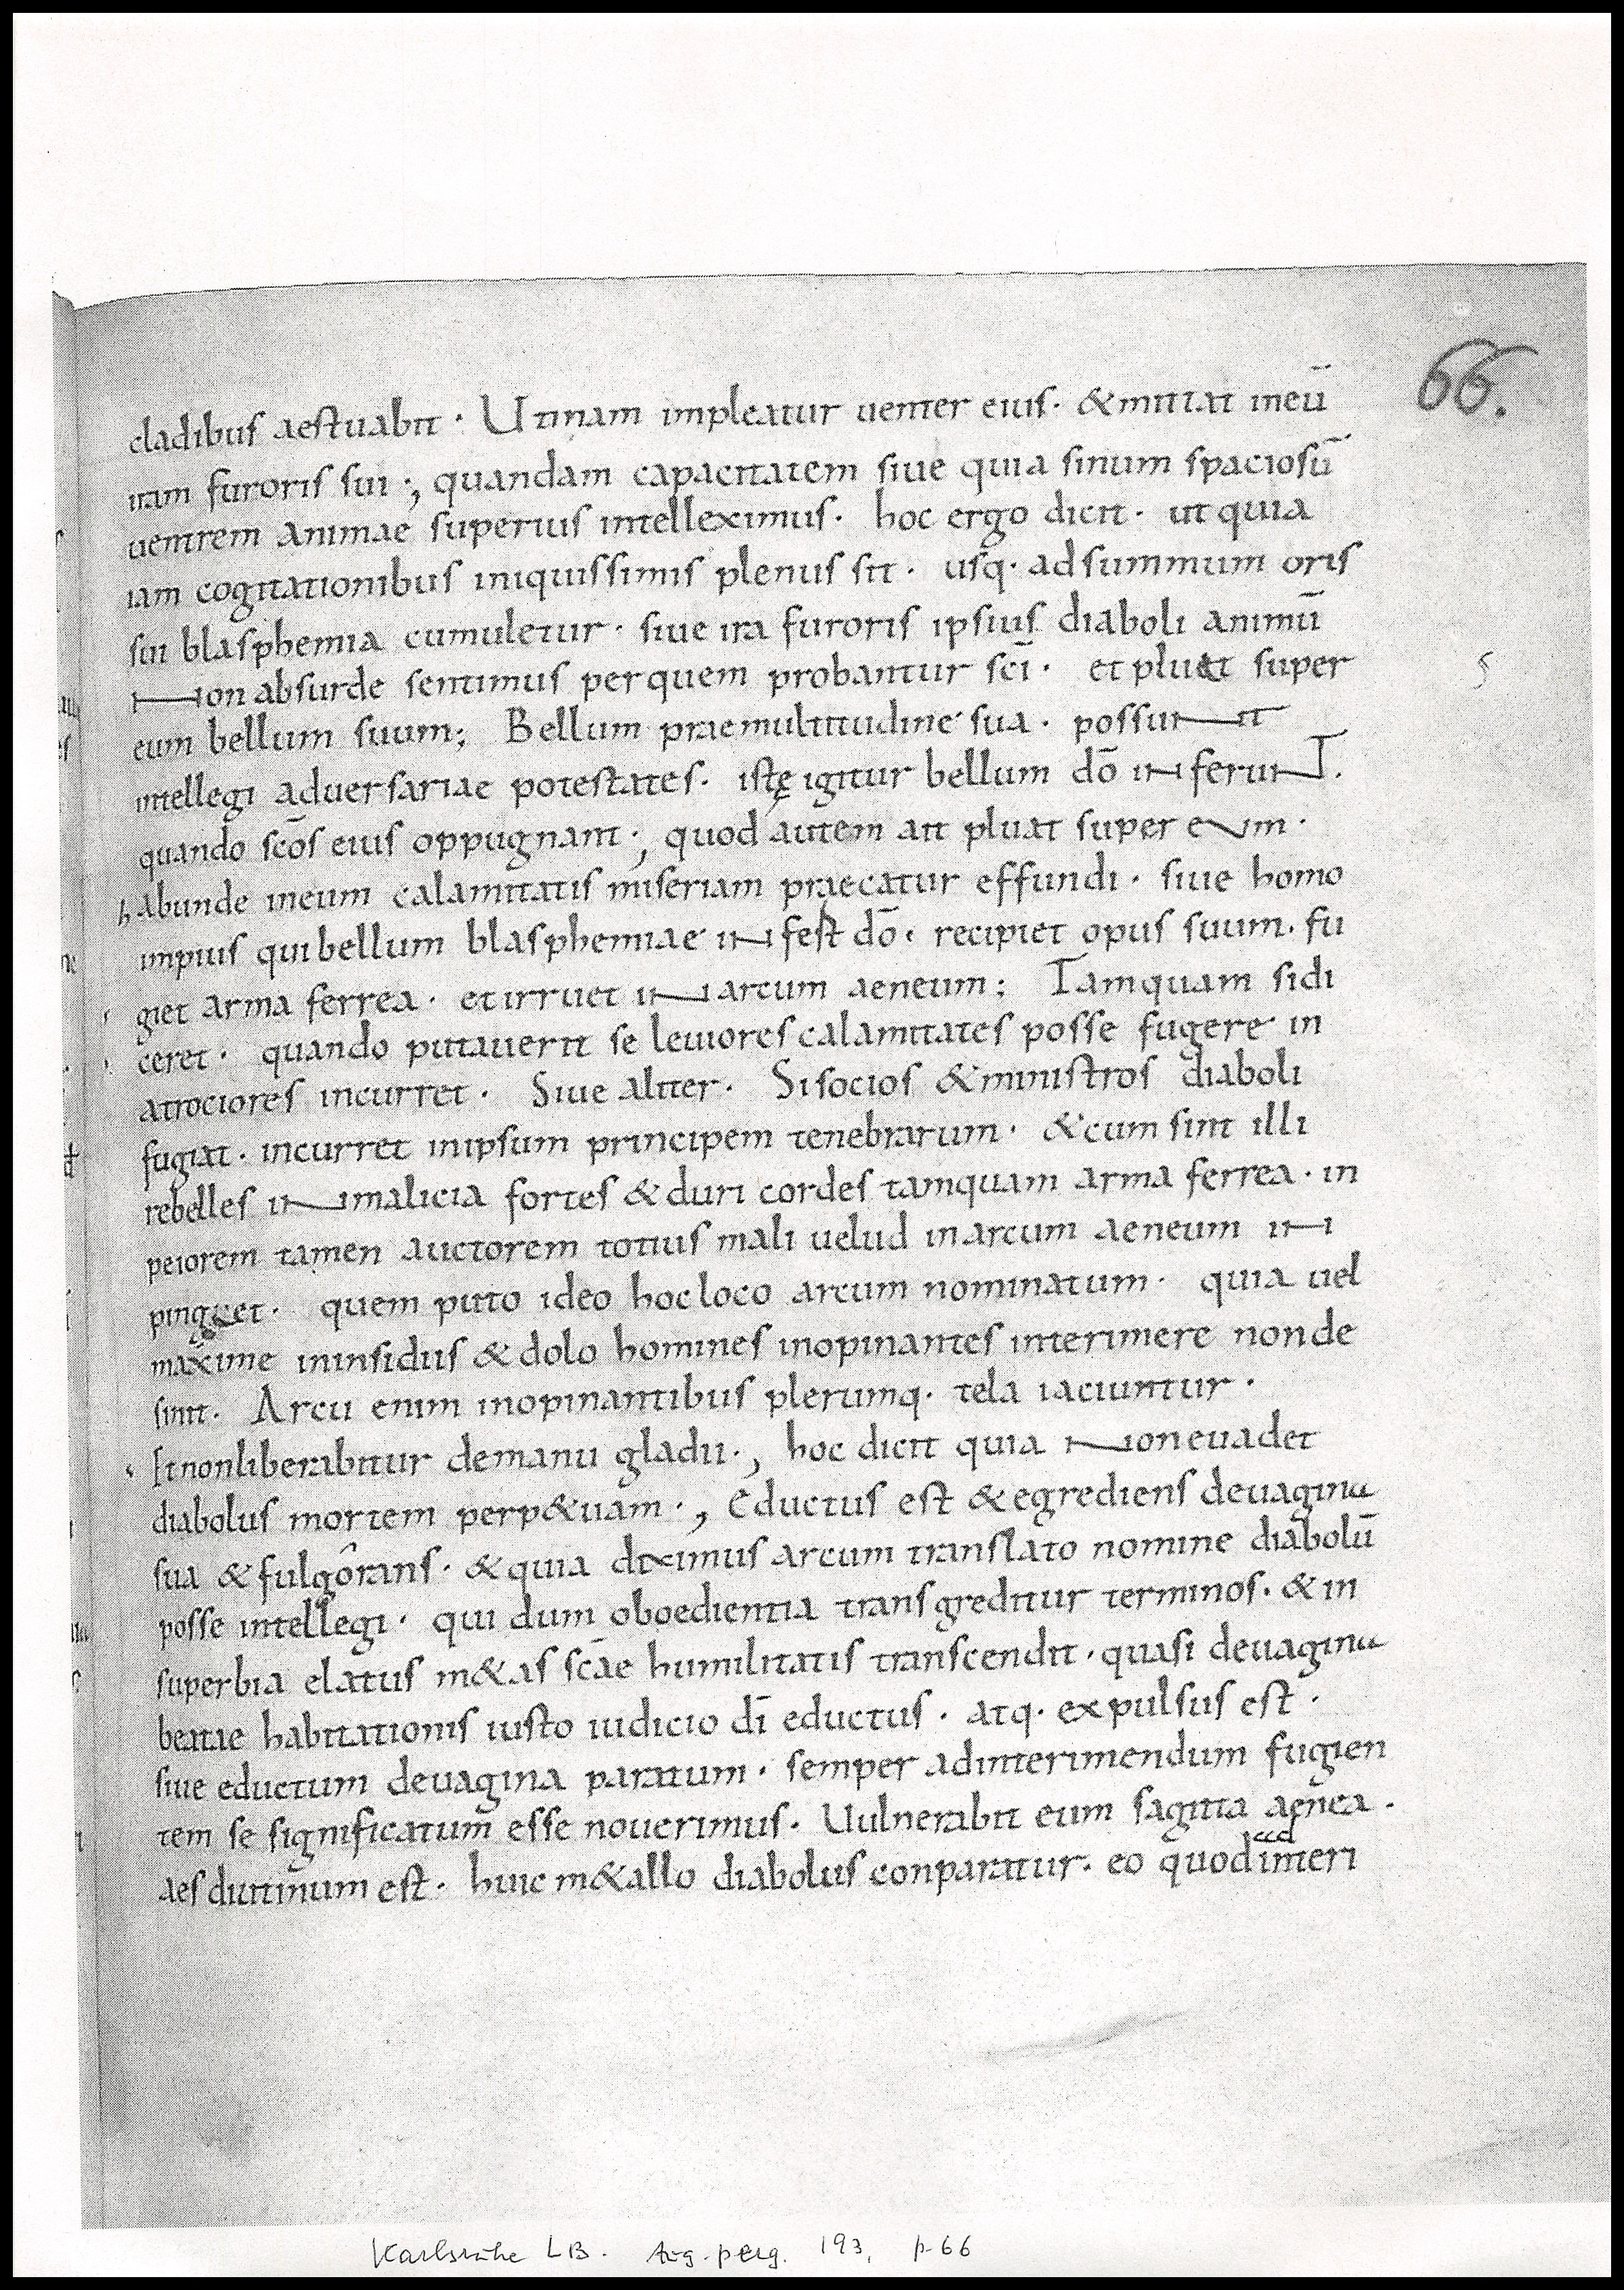 66.
cladibus aestuabit · Utinam impleatur uenter eius · & mittat ineū
iram furoris sui ·, quandam capacitatem siue quia sinum spaciosū
uentrem animae superius intelleximus · hoc ergo dicit · ut quia
iam cogitationibus iniquissimis plenus sit · usq· adsummum oris
sui blasphemia cumuletur · siue ira furoris ipsius diaboli animū
Non absurde sentimus perquem probantur scī · et pluat super
eum bellum suum; Bellum praemultitudine sua · possunt
intellegi aduersariae potestates · istę igitur bellum dō inferunt.
quando scōs eius oppugnant ·, quod autem ait pluat super eum ·
habunde ineum calamitatis miseriam praecatur effundi · siue homo
impius qui bellum blasphemiae infest dō · recipiet opus suum · fu
giet arma ferrea · et irruet in arcum aeneum; Tamquam sidi
ceret · quando putauerit se leuiores calamitates posse fugere in
atrociores incurret · Siue aliter · Si socios & ministros diaboli
fugiat · incurret inipsum principem tenebrarum · & cum sint illi
rebelles in malicia fortes & duri cordes tamquam arma ferrea · in
peiorem tamen auctorem totius mali uelud inarcum aeneum in
pinget · quem puto ideo hoc loco arcum nominatum · quia uel
maxime ininsidiis & dolo homines inopinantes interimere nonde
sinit · Arcu enim inopinantibus plerumq· tela iaciuntur ·
Et non liberabitur demanu gladii ·, hoc dicit quia non euadet
diabolus mortem perp&uam ·, Eductus est & egrediens deuagina
sua & fulgorans · & quia diximus arcum translato nomine diabolū
posse intellegi · qui dum oboedientia transgreditur terminos · & in
superbia elatus m&as scāe humilitatis transcendit · quasi deuagina
beatae habitationis iusto iudicio dī eductus · atq· expulsus est ·
siue eductum deuagina paratum · semper adinterimendum fugien
tem se significatum esse nouerimus · Uulnerabit eum sagitta aenea ·
aes durinum est · huic m&allo diabolus conparatur · eo quod interi
Karlsruhe LB. Aug. perg. 193, p. 66